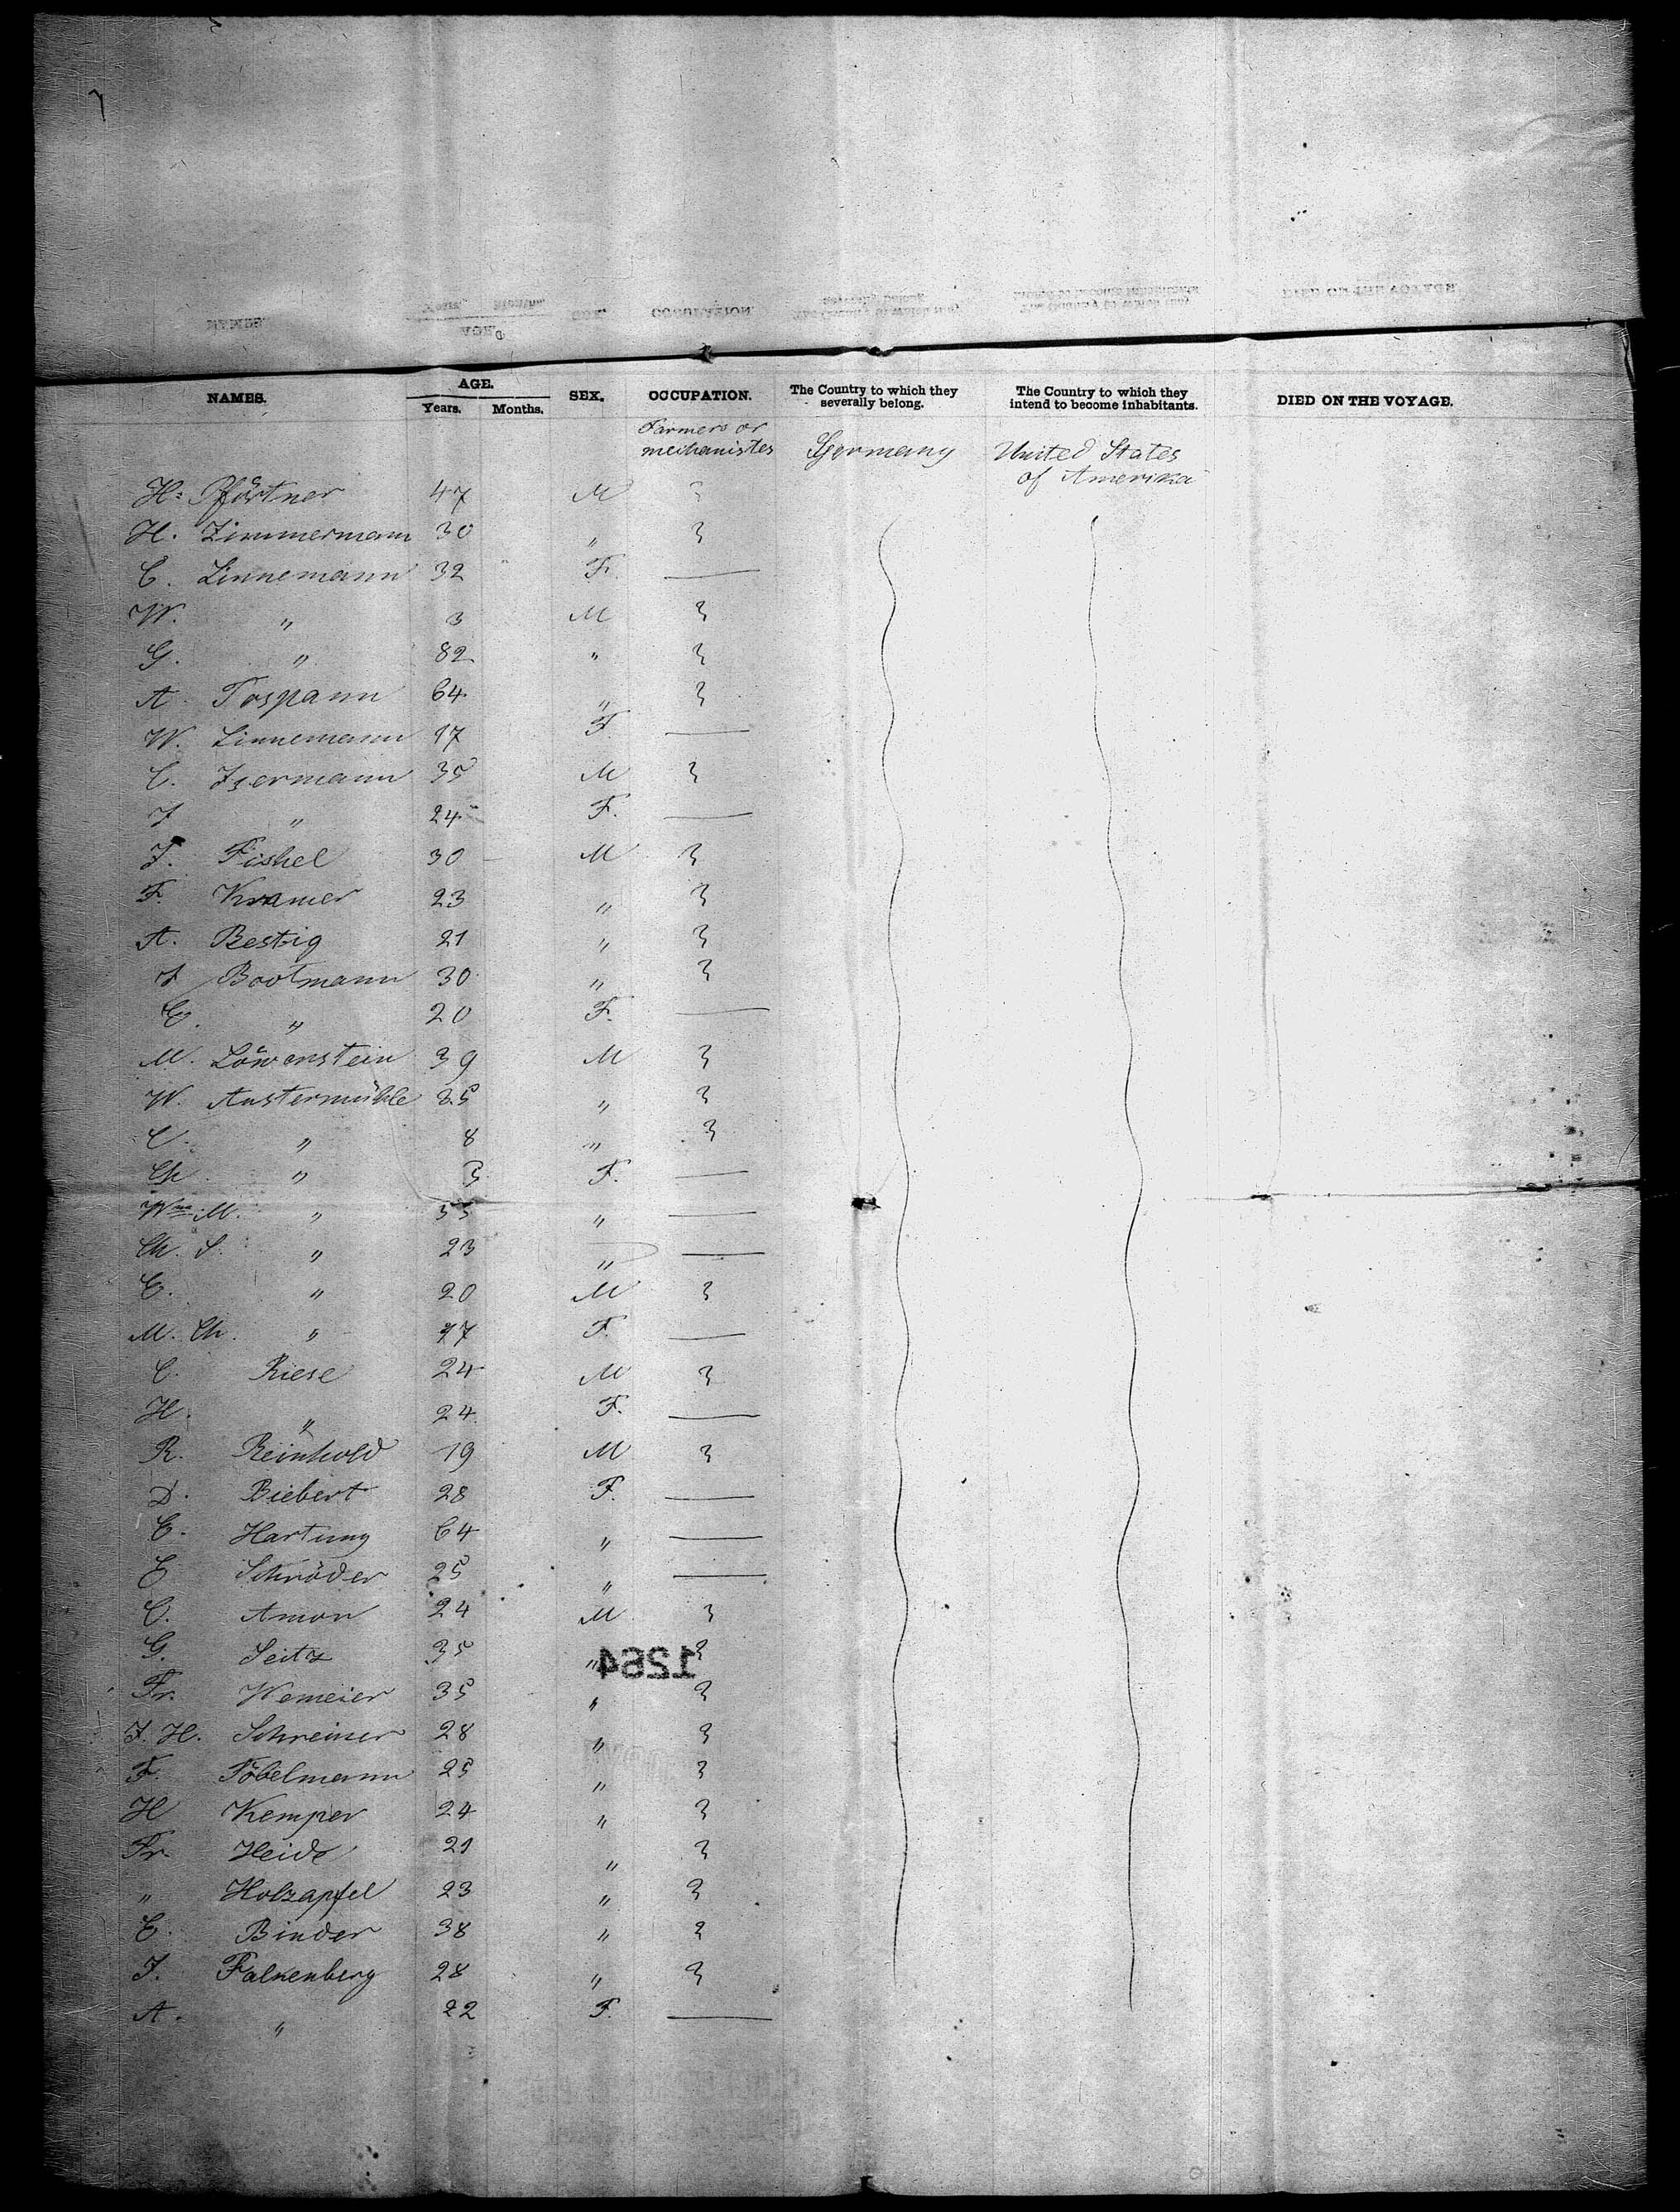 NAMES. AGE. SEX. OCCUPATION. The Country to which they severally belong. The Country to which they intend to become inhabitants. DIED ON THE VOYAGE.
Years. Months.
Farmers or mechanistes Germany United States of Amerika
H. Pförtner 47 M "
H. Zimmermann 30 " "
C. Linnemann 32 F. —
W. " 3 M "
G. " 82 " "
A. Tospann 64 " "
W. Linnemann 17 F —
C. Isermann 35 M "
J " 24 F. —
J. Fishel 30 M "
F. Kramer 23 " "
A. Bestig 21 " "
J Bootmann 30 " "
C. " 20 F. —
M. Löwenstein 39 M "
W. Austermühle 35 " "
C. " 8 " "
Ch. " 3 F. —
Wwe M. " 55 " —
Ch. S. " 23 " —
C. " 20 M "
M. Ch. " 17 F. —
C. Riese 24 M "
H. " 24 F. —
R. Reinhold 19 M "
D. Biebert 28 F. —
C. Hartung 64 " —
E Schröder 25 " —
C. Amon 24 M "
G. Seitz 35 " "
1264
Fr. Wemeier 35 " "
J. H. Schreiner 28 " "
F. Föbelmann 25 " "
H Kemper 24 " "
Fr. Heide 21 " "
" Holzapfel 23 " "
C. Binder 38 " "
J. Falkenberg 28 " "
A. " 22 F. —